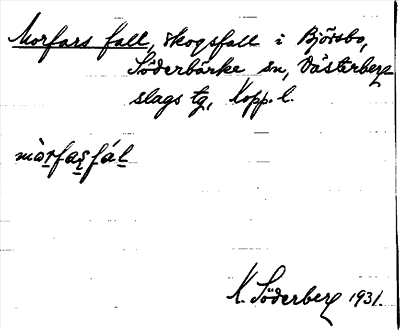 Morfars fall, skogsfall i Björsbo,
Söderbärke sn, Västerbergs-
slags tg, Kopp. l.
mòrfas̨fál
K. Söderberg 1931.